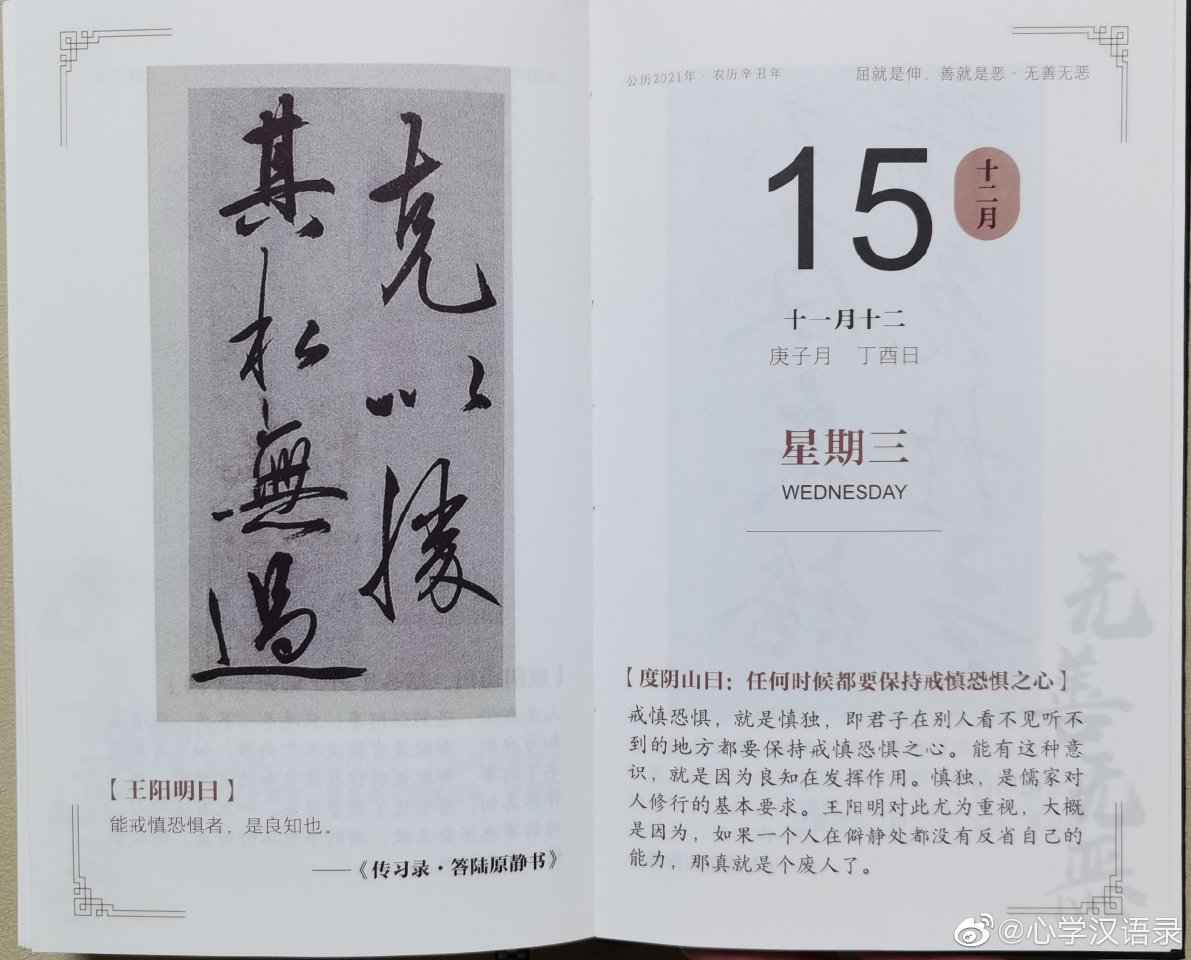 克以勝
其私無過
【王阳明曰】
能戒慎恐惧者，是良知也。
——《传习录·答陆原静书》
公历2021年·农历辛丑年
屈就是伸，善就是恶·无善无恶
15
十二月
十一月十二
庚子月 丁酉日
星期三
WEDNESDAY
【度阴山曰：任何时候都要保持戒慎恐惧之心】
戒慎恐惧，就是慎独，即君子在别人看不见听不
到的地方都要保持戒慎恐惧之心。能有这种意
识，就是因为良知在发挥作用。慎独，是儒家对
人修行的基本要求。王阳明对此尤为重视，大概
是因为，如果一个人在僻静处都没有反省自己的
能力，那真就是个废人了。
无善无恶
@心学汉语录